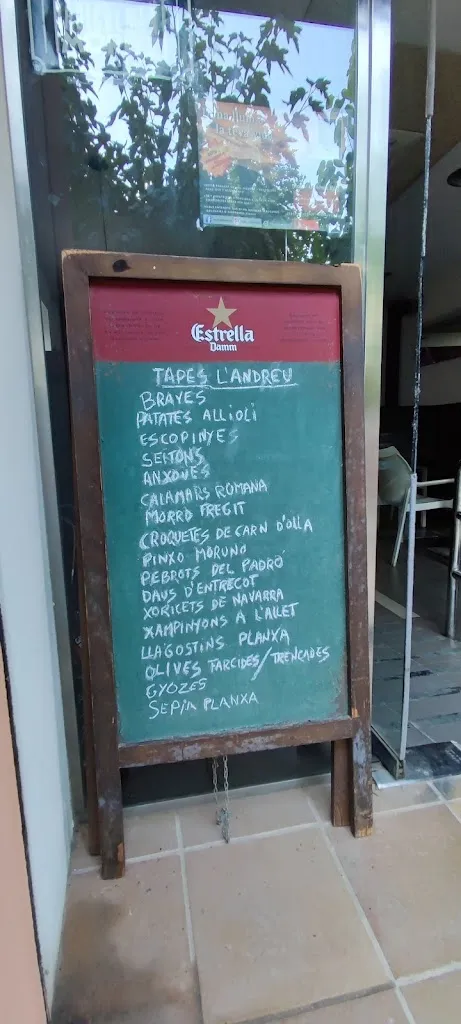 Estrella
Damm
TAPES L'ANDREU
BRAVES
PATATES ALLIOLI
ESCOPINYES
SEITONS
ANXOVES
CALAMARS ROMANA
MORRO FREGIT
CROQUETES DE CARN D'OLLA
PINXO MORUNO
PEBROTS DEL PADRÓ
DAUS D'ENTRECOT
XORICETS DE NAVARRA
XAMPINYONS A L'ALLET
LLAGOSTINS PLANXA
OLIVES FARCIDES/TRENCADES
GYOZES
SEPIA PLANXA